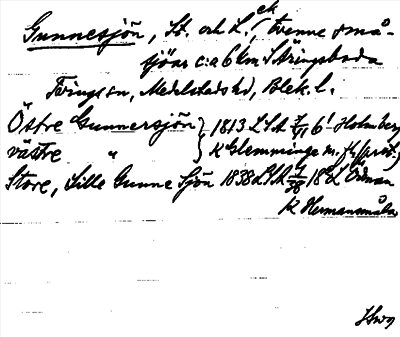 Gunnesjön, St. och L. (ek, tvenne små-
sjöar c:a 6 km S Äringsboda
Tvings sn, Medelstads hd, Blek. l.
Östre Gunnersjön } 1813 LSA 6¹ Holmberg
västre " } K Glemminge m. fl.
Store, Lille Gunne Sjön 1838 LSA 18
K Hermansmåla